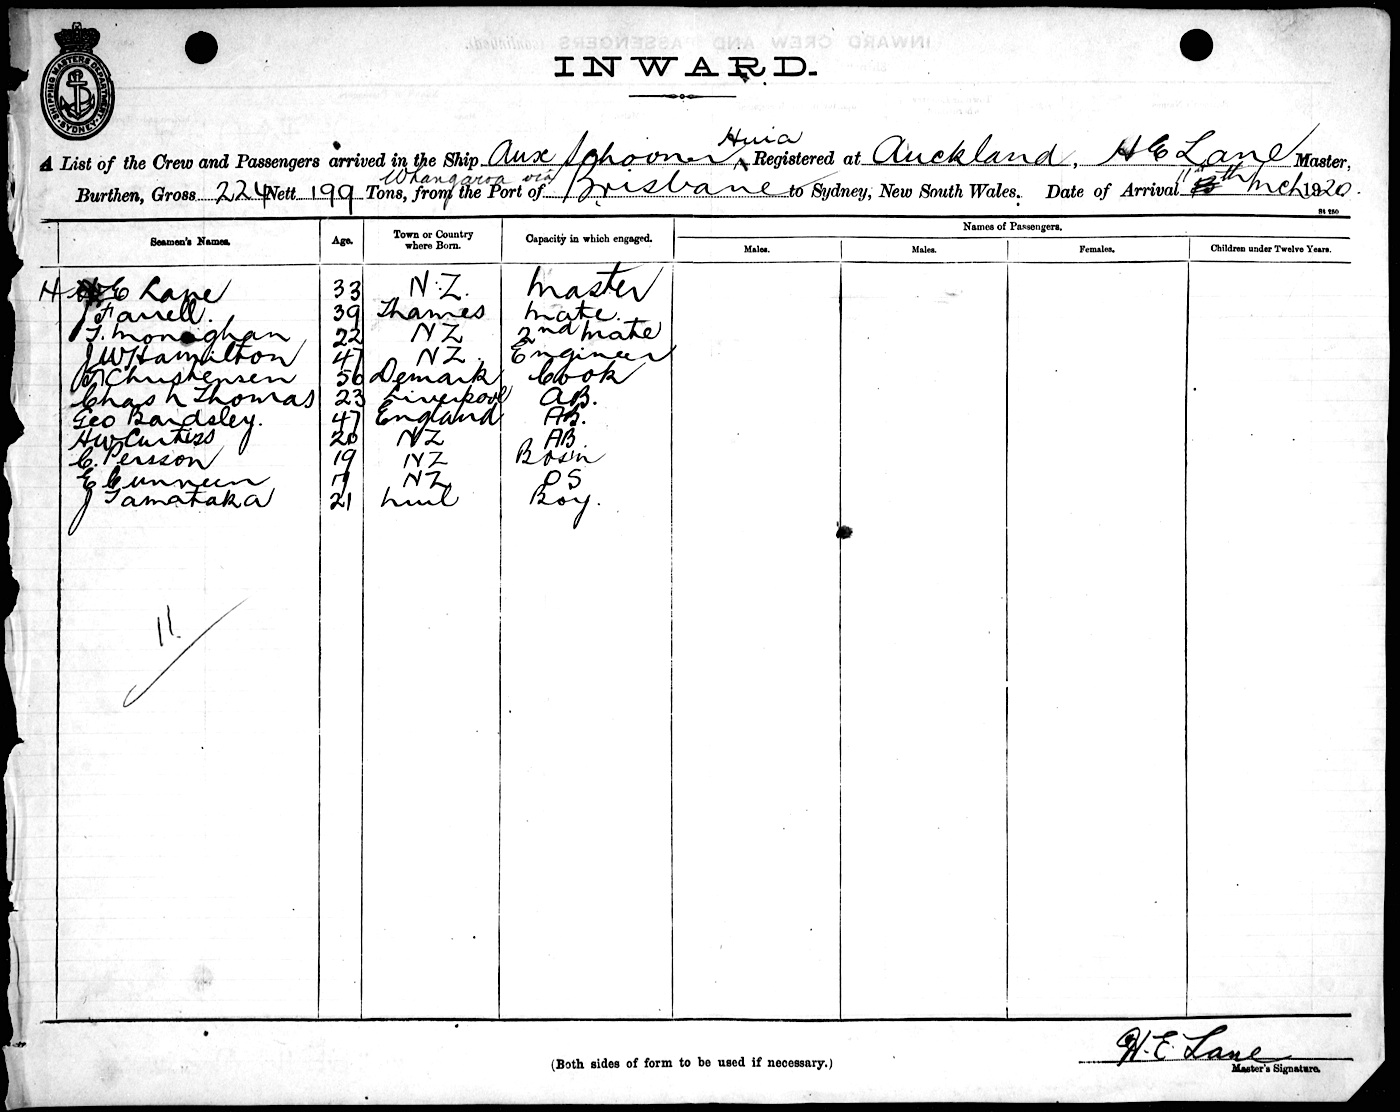 SHIPPING MASTERS DEPARTMENT SYDNEY
INWARD.
Huia
A List of the Crew and Passengers arrived in the Ship Aux Schooner, Registered at Auckland, H E Lane Master,
Whangaroa via
Burthen, Gross 224 Nett 199 Tons, from the Port of Brisbane to Sydney, New South Wales. Date of Arrival 11th Mch 1920.
St 250
Seamen's Names. Age. Town or Country where Born. Capacity in which engaged. Names of Passengers.
Males. Males. Females. Children under Twelve Years.
H E Lane 33 N.Z. Master
J Farrell. 39 Thames Mate.
T. Monaghan 22 NZ 2nd Mate
J W Hamilton 47 NZ. Engineer
Christensen 56 Demark Cook
Chas h Thomas 23 Liverpool AB.
Geo Bardsley. 47 England AB.
H W Curtiss 20 NZ AB
C. Persson 19 NZ Bosn
E Cunneen 17 NZ OS
J Tamataka 21 Boy.
11.
H.E. Lane
(Both sides of form to be used if necessary.)
Master's Signature.